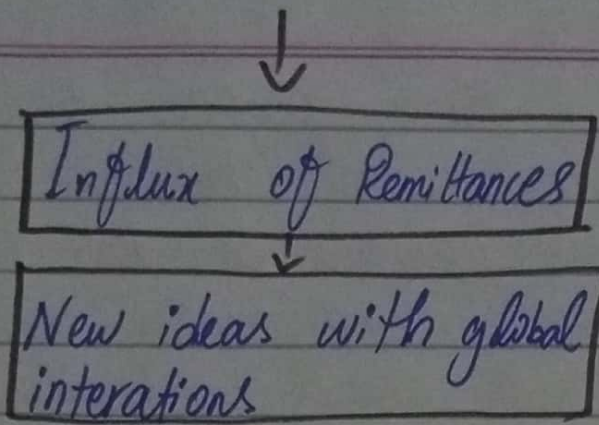 Influx of Remittances
New ideas with global
interations